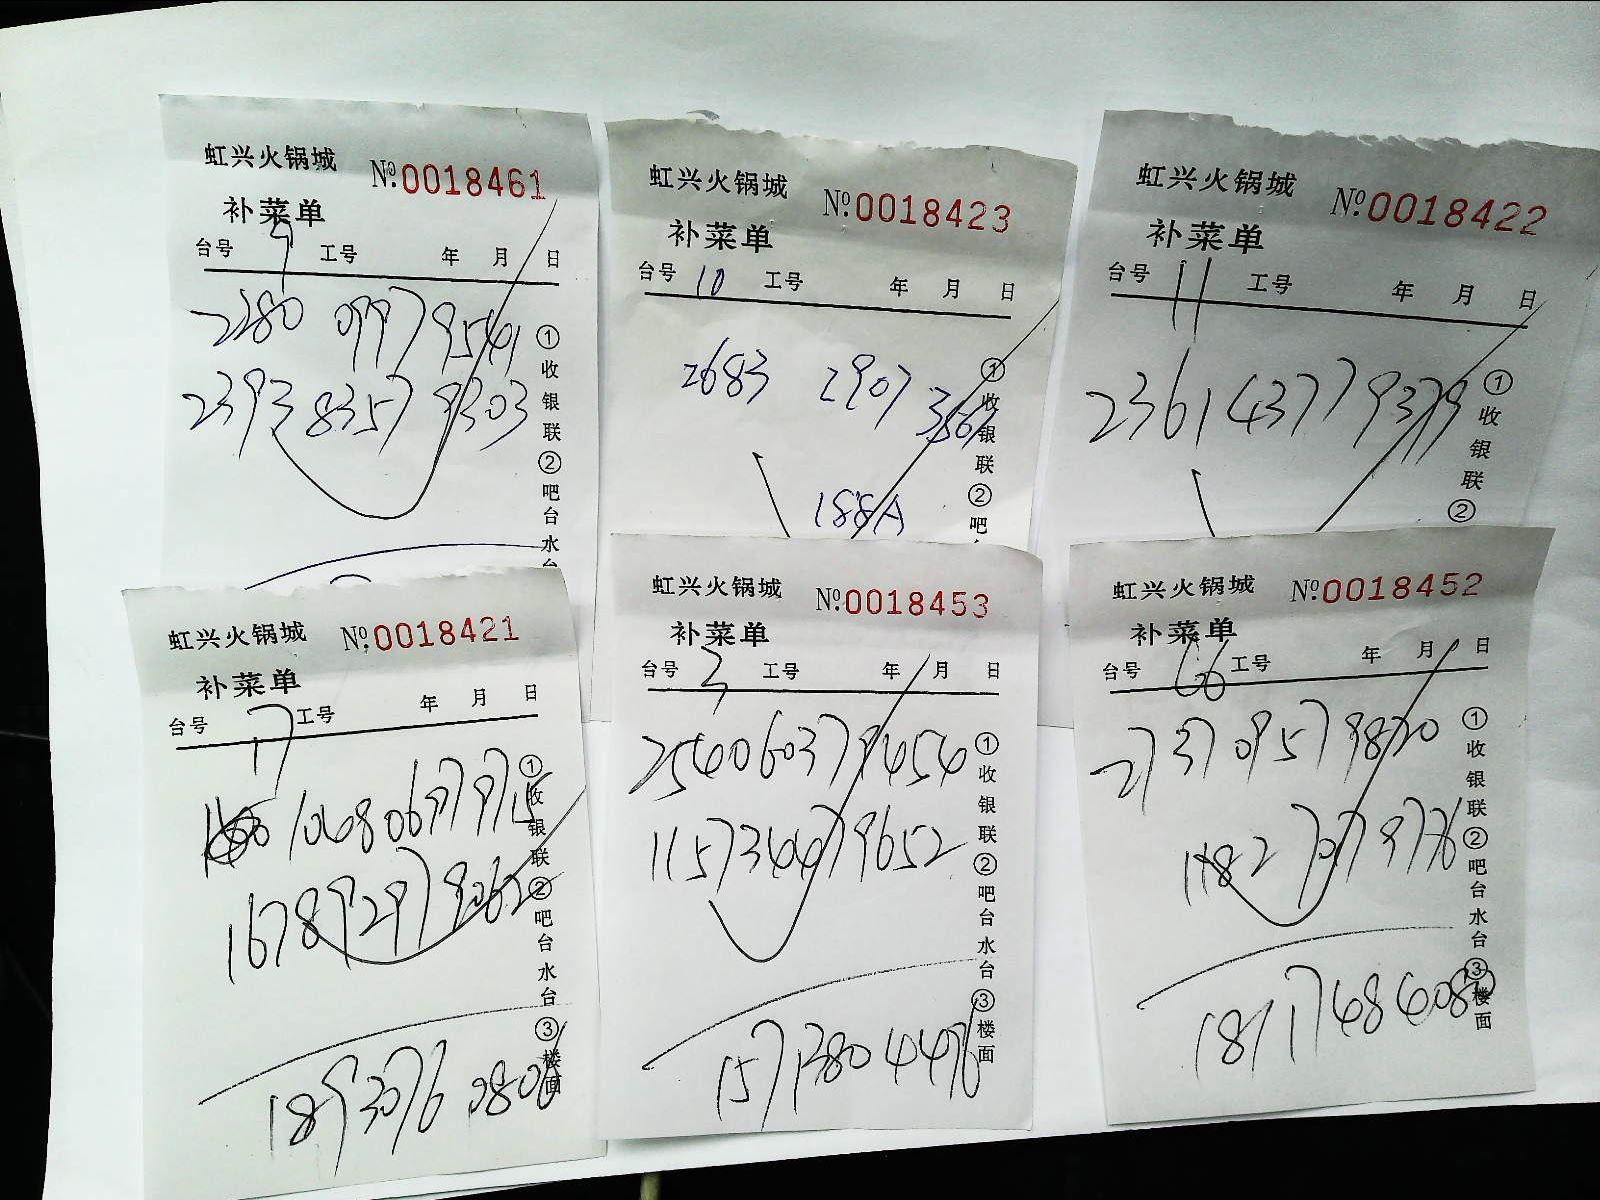 虹兴火锅城 №.0018461
补菜单
台号 9 工号 年 月 日
2280 0997 9541
2393 8357 9303
①收银联②吧台水台
虹兴火锅城 №.0018423
补菜单
台号 10 工号 年 月 日
2683 2907
188A
①收银联②吧
虹兴火锅城 №.0018422
补菜单
台号 11 工号 年 月 日
2361 4377 9379
①收银联②
虹兴火锅城 №.0018421
补菜单
台号 17 工号 年 月 日
1678 9297 9062
1893076 0806
①收银联②吧台水台③楼面
虹兴火锅城 №.0018453
补菜单
台号 3 工号 年 月 日
2540 6037 9454
1157 3447 9652
157 1380 4476
①收银联②吧台水台③楼面
虹兴火锅城 №.0018452
补菜单
台号 66 工号 年 月 日
2737 0957 9820
1182 7077 9776
①收银联②吧台水台③楼面